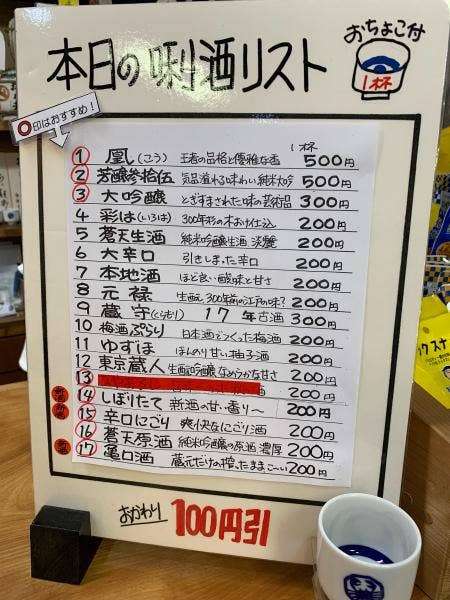 本日の唎酒リスト
おちょこ付
1杯
○印はおすすめ!
1杯
1 凰(こう) 王者の品格と優雅な香 500円
2 芳醸参拾伍 気品溢れる味わい純米大吟 500円
3 大吟醸 とぎすまされた味の芸術品 300円
4 彩は(いろは) 300年杉の木おけ仕込 200円
5 蒼天生酒 純米吟醸生酒 淡麗 200円
6 大辛口 引きしまった辛口 200円
7 本地酒 ほど良い酸味と甘さ 200円
8 元禄 生酛 300年前の江戸の味? 200円
9 蔵守(くらもり) 17年古酒 300円
10 梅酒ぷらり 日本酒でつくった梅酒 200円
11 ゆずほ ほんのり甘い柚子酒 200円
12 東京蔵人 生酛吟醸なめらかな甘さ 200円
13
14 しぼりたて 新酒の甘い香り〜 200円
15 辛口にごり 爽快なにごり酒 200円
16 蒼天原酒 純米吟醸の原酒 濃厚 200円
17 亀口酒 蔵元だけの搾ったままこ〜い 200円
おかわり 100円引